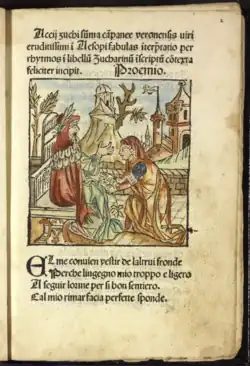 Accij zuchi sũma cãpanee veronensis viri
eruditissimi ĩ Aesopi fabulas ĩterp̃tatio per
rhytmos ĩ libellũ Zucharinũ ĩscriptũ cõtexta
feliciter incipit. Prohemio.
EL me conuien vestir de laltrui fronde
Perche lingegno mio troppo e ligero
A seguir lorme per si bon sentiero.
Cal mio rimar facia perfette sponde.